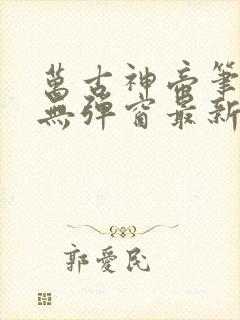 萬古神帝筆
無彈窗最新
郭愛民